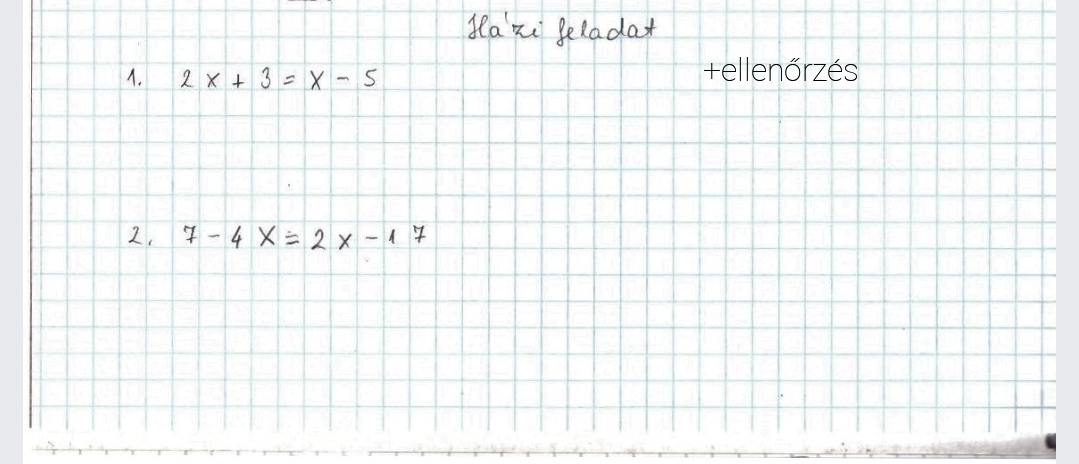 Házi feladat
+ellenőrzés
1. 2x + 3 = x - 5
2. 7 - 4x = 2x - 17